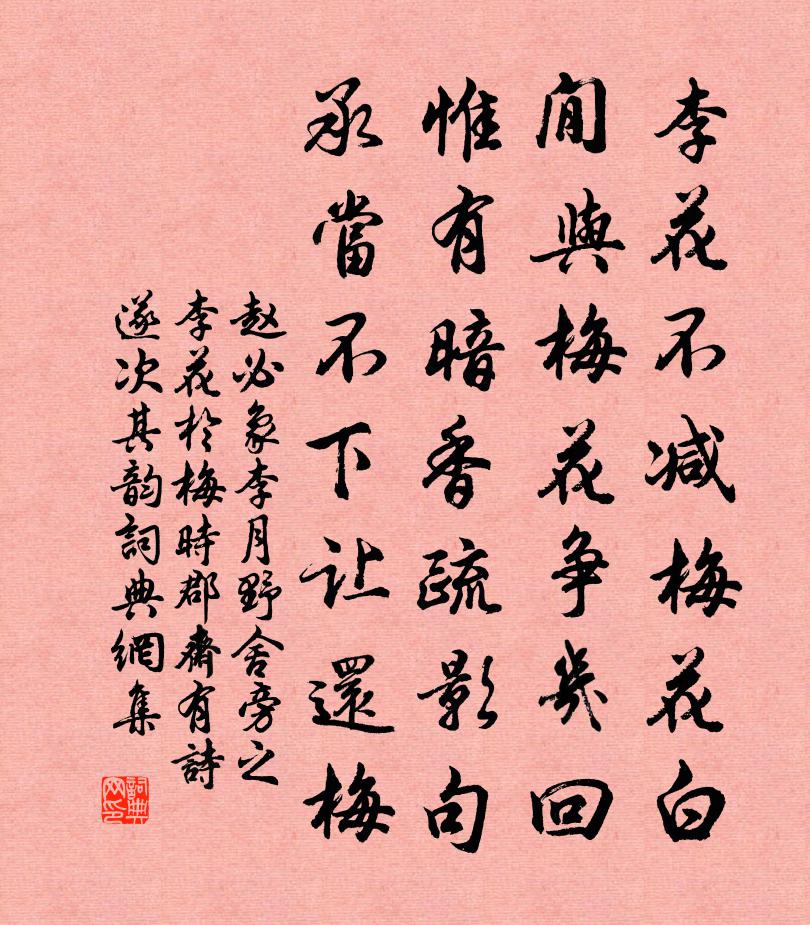 李花不减梅花白
閒與梅花争幾回
惟有暗香疏影句
承當不下让還梅
赵必象李月野舍旁之
李花於梅時郡齋有詩
遂次其韵詞典網集
詞典网印